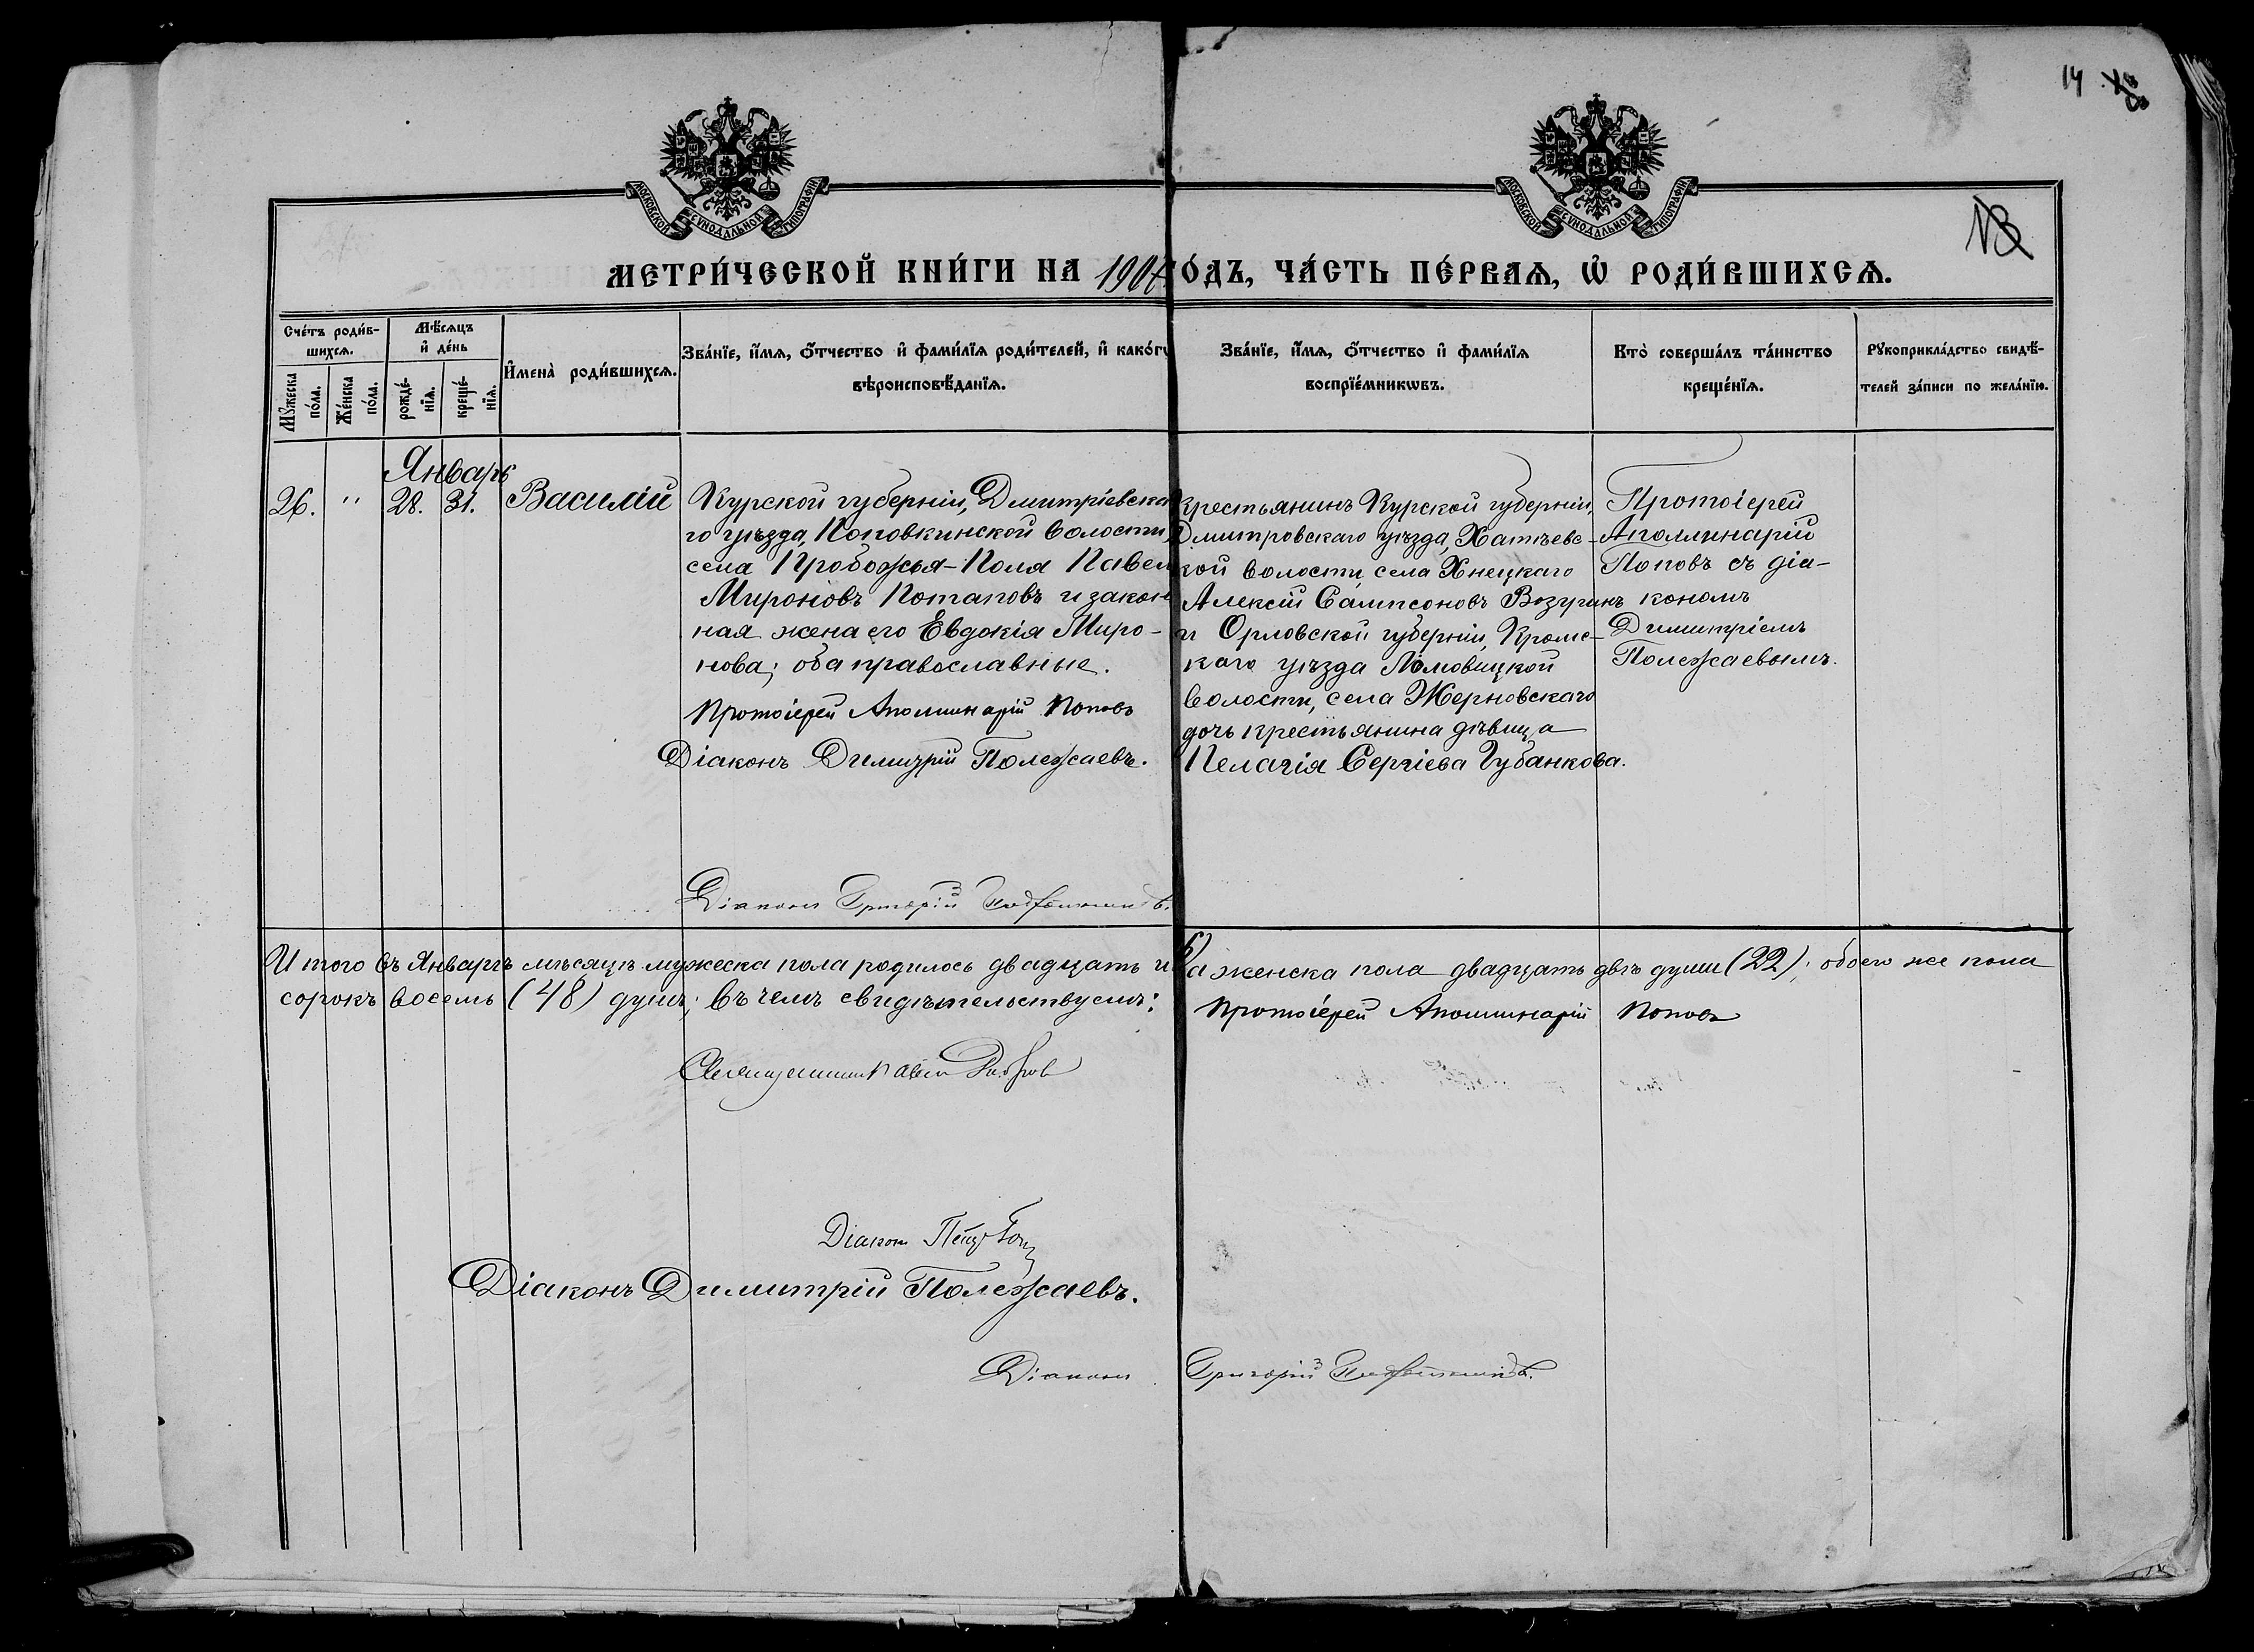 14
13
МОСКОВСКОЙ СУНОДАЛЬНОЙ ТИПОГРАФІИ
МОСКОВСКОЙ СУНОДАЛЬНОЙ ТИПОГРАФІИ
МЕТРИ́ЧЕСКОЙ КНИ́ГИ НА 190 ГО́ДЪ, ЧА́СТЬ ПЕ́РВАѦ, Ѡ҆ РОДИ́ВШИХСѦ.
Сче́тъ роди́в-
шихсѧ.
Мꙋ́жеска по́ла.
Же́нска по́ла.
Мѣ́сѧцъ
и҆ де́нь
рожде́-
нїѧ.
креще́-
нїѧ.
И҆мена̀ роди́вшихсѧ.
Зва́нїе, и҆́мѧ, ѻ҆́тчество и҆ фами́лїѧ роди́телей, и҆ како́гѡ
вѣроисповѣ́данїѧ.
Зва́нїе, и҆́мѧ, ѻ҆́тчество и҆ фами́лїѧ
воспрїе́мникѡвъ.
Кто̀ соверша́лъ та́инство
креще́нїѧ.
Рꙋкоприкла́дство свидѣ́-
телей за́писи по жела́нїю.
Январь
26. " 28. 31. Василій
Курской губерніи, Дмитріевска
го уѣзда, Поповкинской волости,
села Пробожья-Поля Павел
Мироновъ Потаповъ и закон
ная жена его Евдокія Миро-
нова; оба православные.
Протоіерей Аполлинарій Поповъ
Діаконъ Димитрій Полежаевъ.
Діаконъ Григорій
Крестьянинъ Курской губерніи,
Дмитровскаго уѣзда, Хатѣевс-
кой волости, села Хнецкаго
Алексій Сампсоновъ Возгринъ
и Орловской губерніи, Кромс-
каго уѣзда Ломовицкой
волости, села Жерновскаго
дочь крестьянина дѣвица
Пелагія Сергіева Губанкова.
Протоіерей
Аполлинарій
Поповъ съ діа-
кономъ
Димитріемъ
Полежаевымъ.
Итого въ Январѣ мѣсяцѣ мужеска пола родилось двадцать и а женска пола двадцать двѣ души (22); обоего же пола
сорокъ восемь (48) душъ; въ чемъ свидѣтельствуемъ: Протоіерей Аполлинарій Поповъ
Священникъ
Діаконъ Петръ
Діаконъ Димитрій Полежаевъ.
Діаконъ Григорій